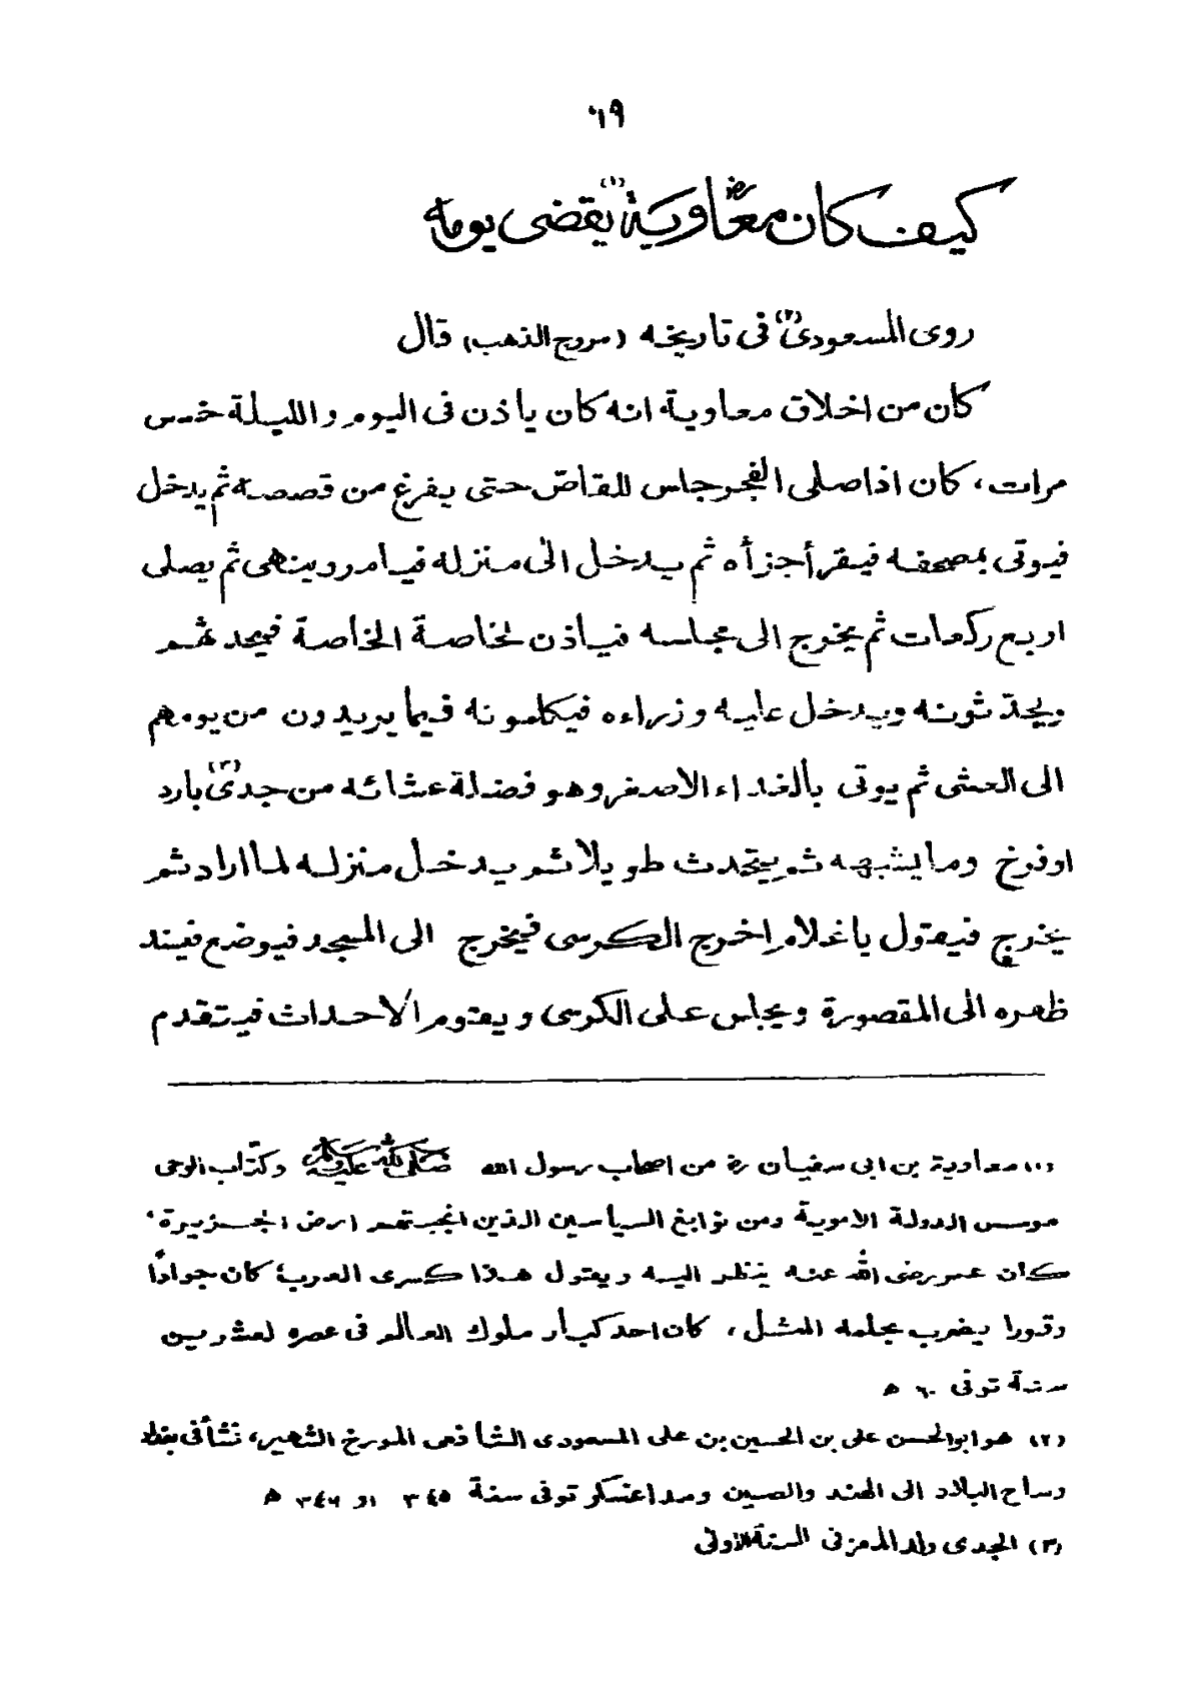 ٦٩
كيف كان معاوية رضـ (١) يقضى يومه
روى المسعودى (٢) فى تاريخه (مروج الذهب) قال
كان من اخلاق معاوية انه كان ياذن فى اليوم والليلة خمس
مرات، كان اذا صلى الفجر جلس للقاصّ حتى يفرغ من قصصه ثم يدخل
فيوتى بمصحفه فيقرأ جزأه ثم يدخل الى منزله فيامر وينهى ثم يصلى
اربع ركعات ثم يخرج الى مجلسه فياذن لخاصة الخاصة فيحدثهم
ويحدثونه ويدخل عليه وزراءه فيكلمونه فيما يريدون من يومهم
الى العشى ثم يوتى بالغداء الاصغر وهو فضلة عشائه من جدى (٣) بارد
او فرخ وما يشبهه ثم يتحدث طويلا ثم يدخل منزله لما اراد ثم
يخرج فيقول يا غلام اخرج الكرسى فيخرج الى المسجد فيوضع فيسند
ظهره الى المقصورة ويجلس على الكرسى ويقوم الاحداث فيتقدم
(١) معاوية بن ابى سفيان رضـ من اصحاب رسول الله صَلَّى اللهُ عَلَيْهِ وَسَلَّم وكتّاب الوحى
موسس الدولة الاموية ومن نوابغ السياسين الذين انجبتهم ارض الجزيرة،
كان عمر رضى الله عنه ينظر اليه ويقول هذا كسرى العرب، كان جوادًا
وقورا يضرب بحلمه المثل، كان احد كبار ملوك العالم فى عصره لعشرين
سنة توفى ٦٠ ھ
(٢) هو ابو الحسن على بن الحسين بن على المسعودى الشافعى المورخ الشهير، نشأ فى بغداد
وساح البلاد الى الهند والصين ومدغسكر توفى سنة ٣٤٥ او ٣٤٦ ھ
(٣) الجدى ولد المعز فى السنة الاولى